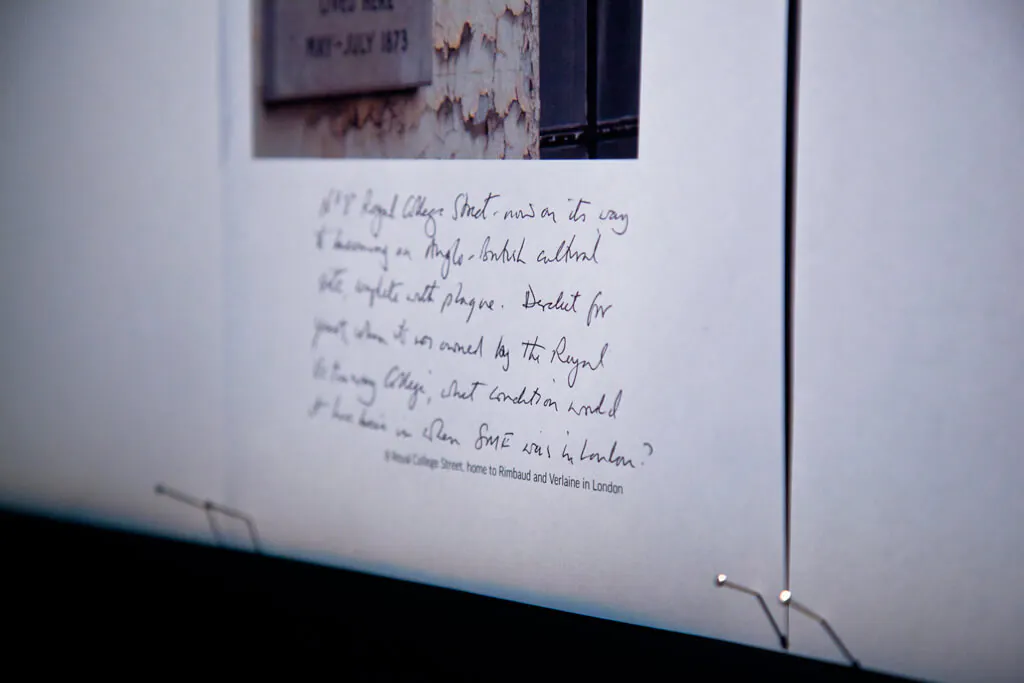 LIVED HERE
MAY-JULY 1873
Nº 8 Royal College Street - now on its way
to becoming an Anglo-British cultural
site, complete with plaque. Derelict for
years, when it was owned by the Royal
Veterinary College, what condition would
it have been in when SME was in London?
8 Royal College Street, home to Rimbaud and Verlaine in London